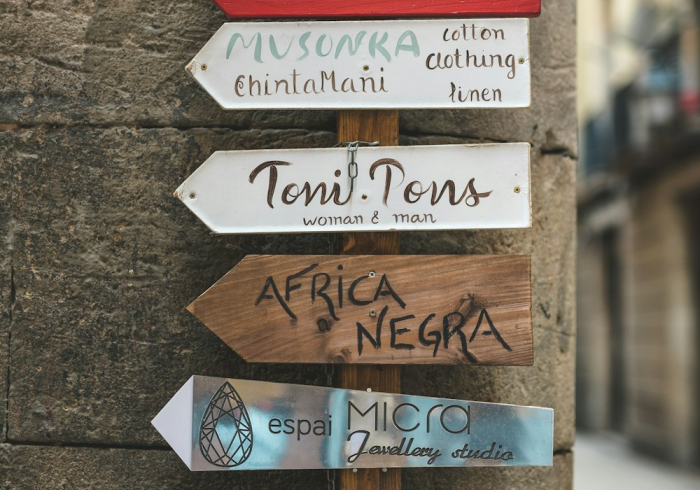 MUSONKA cotton
ChintaMani clothing
linen
Toni Pons
woman & man
AFRICA
NEGRA
espai MICRA
Jewellery studio